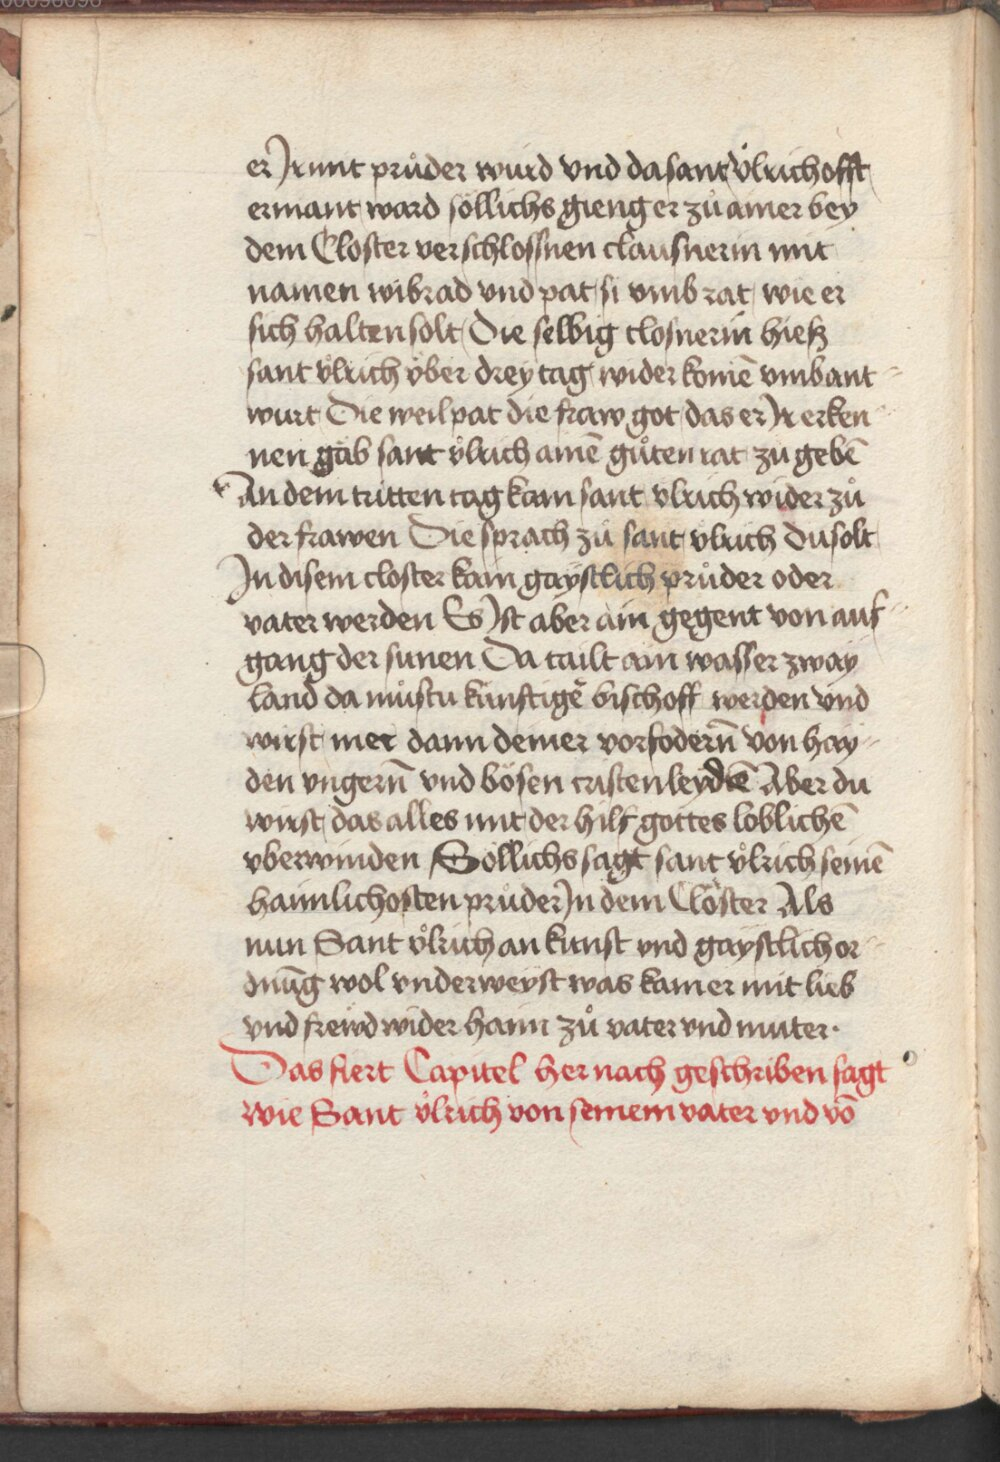 er Ir mit průder wurd vnd da sant vͦlrich offt
ermant ward söllichs gieng er zů ainer bey
dem Closter verschlossnen clausnerin mit
namen wibrad vnd pat si vmb rat wie er
sich halten solt Die selbig closnerin hieß
sant vͦlrich vͤber drey tag wider komē vmb ant
wurt Die weil pat die fraw got das er Ir erken
nen gäb sant vͦlrich ainē gůten rat zu gebē
An dem tritten tag kam sant vlrich wider zů
der frawen Die sprach zů sant vͦlrich du solt
In disem closter kain gaystlich průder oder
vater werden Es Ist aber ain gegent von auf
gang der sunen Da tailt ain wasser zway
land da můstu künftigē bischoff werden vnd
wirst mer dann deiner vorfodern̄ von hay
den vngern̄ vnd bösen cristen leydē Aber du
wirst das alles mit der hilf gottes loblichē
vberwinden Söllichs sagt sant vͦlrich seinē
haimlichosten průder In dem Closter Als
nun Sant vͦlrich an kunst vnd gaystlich or
dnūg wol vnderweyst was kam er mit lieb
vnd frewd wider haim zů vater vnd muter.
Das fiert Capitel her nach geschriben sagt
wie Sant vͦlrich von seinem vater vnd vō